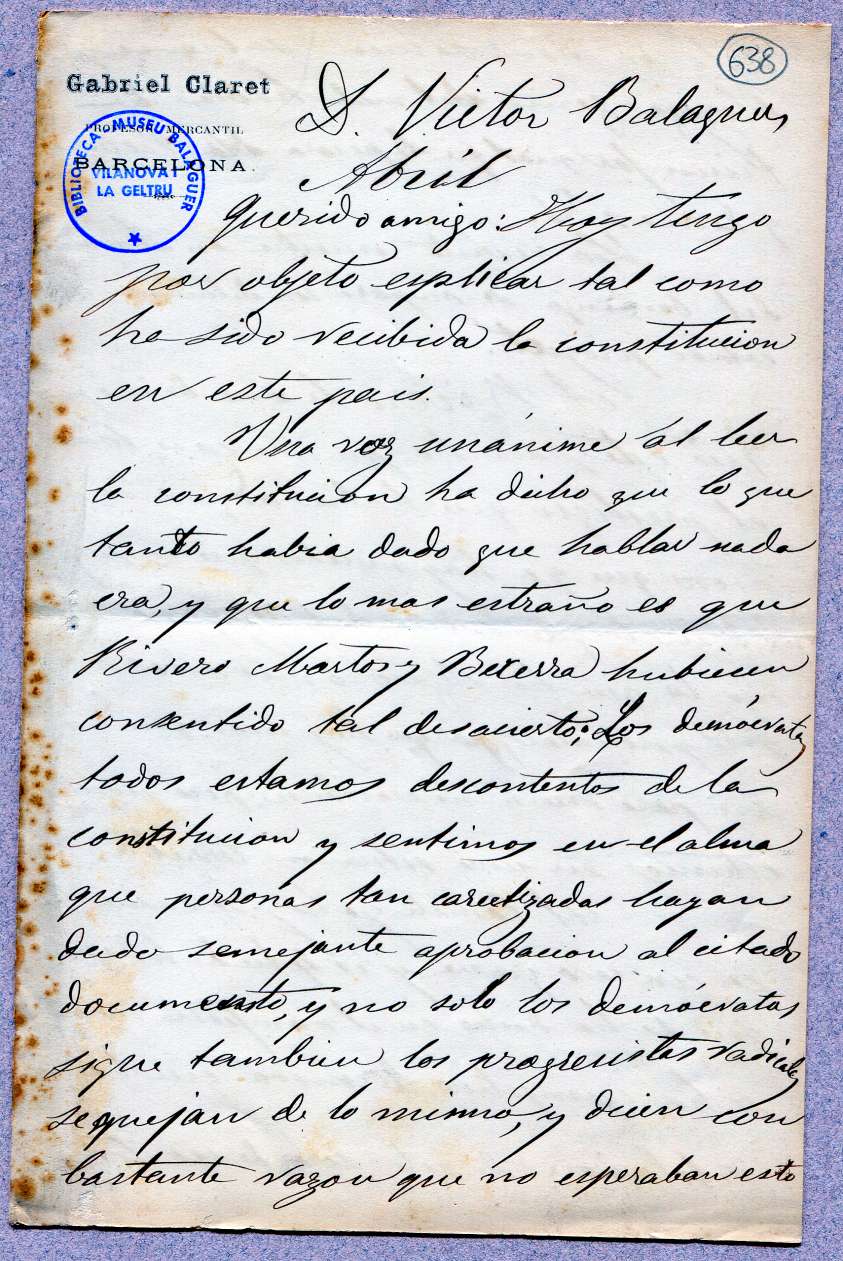 638
Gabriel Claret
PROFESOR MERCANTIL
BARCELONA
BIBLIOTECA-MUSEU BALAGUER
VILANOVA I
LA GELTRU
D. Victor Balaguer
Abril
Querido amigo: Hoy tengo
por objeto esplicar tal como
ha sido recibida la constitucion
en este pais.
Una voz unánime al leer
la constitucion ha dicho que lo que
tanto habia dado que hablar nada
era, y que lo mas estraño es que
Rivero Martos y Becerra hubiesen
consentido tal desacierto; Los demócratas
todos estamos descontentos de la
constitucion y sentimos en el alma
que personas tan caretizadas hayan
dado semejante aprobacion al citado
documento, y no solo los demócratas
sique tambien los progresistas radicales
se quejan de lo mismo, y dicen con
bastante razon que no esperaban esto